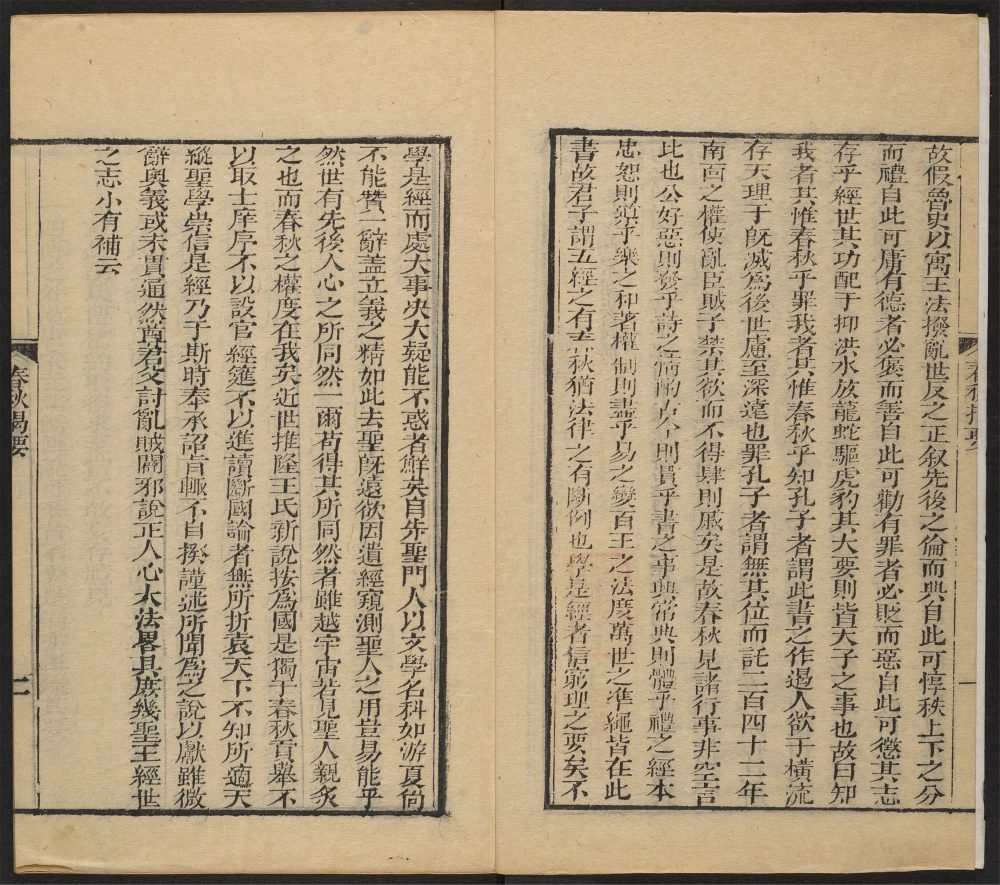 故假魯史以寓王法撥亂世反之正叙先後之倫而典自此可惇秩上下之分
而禮自此可庸有德者必褒而善自此可勸有罪者必貶而惡自此可懲其志
存乎經世其功配于抑洪水放龍蛇驅虎豹其大要則皆天子之事也故曰知
我者其惟春秋乎罪我者其惟春秋乎知孔子者謂此書之作遏人欲于橫流
存天理于旣滅爲後世慮至深遠也罪孔子者謂無其位而託二百四十二年
南面之權使亂臣賊子禁其欲而不得肆則戚矣是故春秋見諸行事非空言
此也公好惡則發乎詩之情酌古今則貫乎書之事興常典則體乎禮之經本
忠恕則導乎樂之和著權制則盡乎易之變百王之法度萬世之凖繩皆在此
書故君子謂五經之有春秋猶法律之有斷例也學是經者信窮理之要矣不
學是經而處大事决大疑能不惑者鮮矣自先聖門人以文學名科如游夏尙
不能贊一辭蓋立義之精如此去聖旣遠欲因遺經窺測聖人之用豈易能乎
然世有先後人心之所同然一爾苟得其所同然者雖越宇宙若見聖人親炙
之也而春秋之權度在我矣近世推隆王氏新說按爲國是獨于春秋貢舉不
以取士庠序不以設官經筵不以進讀斷國論者無所折衷天下不知所適天
縱聖學崇信是經乃于斯時奉承詔旨輒不自揆謹述所聞爲之說以獻雖微
辭奥義或未貫通然尊君父討亂賊闢邪說正人心大法畧具庶幾聖王經世
之志小有補云
春秋揭要
一